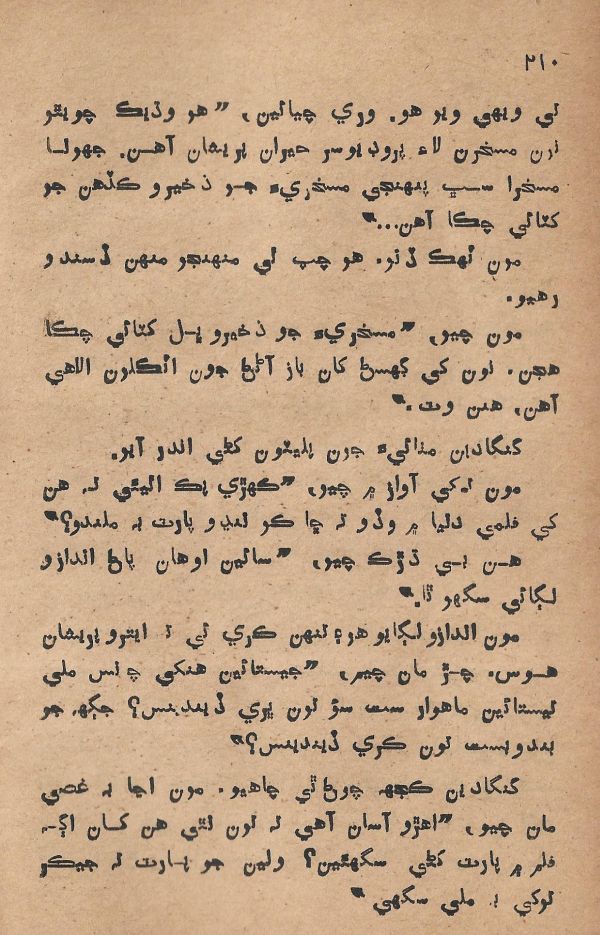 ۲۱۰
ٿي ويهي ويو هو. وري چيائين، ”هو وڌيڪ چويٿو
تن مسخرن لاءِ پروڊيوسر حيران پريشان آهن. جهولا
مسخرا سڀ پنهنجي مسخريءَ جو ذخيرو ڪڏهن جو
کٽائي چڪا آهن...“
مون ٽهڪ ڏنو. هو چپ ٿي منهنجو منهن ڏسندو
رهيو.
مون چيو، ”مسخريءَ جو ذخيرو ڀل کٽائي چڪا
هجن. تون کي ڳهسڻ کان باز آڻڻ جون اٽڪلون الاهي
آهن، هنن وٽ.“
گنگادين مٺائيءَ جون پليٽون کڻي اندر آيو.
مون تکي آواز ۾ چيو، ”ڪهڙي پڪ اٿيئي ته هن
کي فلمي دنيا ۾ وڏو نه ڇا ڪو ننڍو پارٽ به ملندو؟“
هن بي ڌڙڪ چيو، ”سائين اوهان پاڻ اندازو
لڳائي سگهو ٿا.“
مون اندازو لڳايو هو، تنهن ڪري ئي ته ايترو پريشان
هوس. چڙ مان چيم، ”جيستائين هنکي چانس ملي
تيستائين ماهوار ست سؤ تون ڀري ڏيندينس؟ جڳهه جو
بندوبست تون ڪري ڏيندينس؟“
گنگادين ڪجهه چوڻ ٿي چاهيو. مون اڃا به غصي
مان چيو، ”اهڙو آسان آهي ته تون نٿي هن کان اڳ۾
فلم ۾ پارٽ کڻي سگهئين؟ ولين جو پارٽ ته جيڪر
توکي به ملي سگهي“